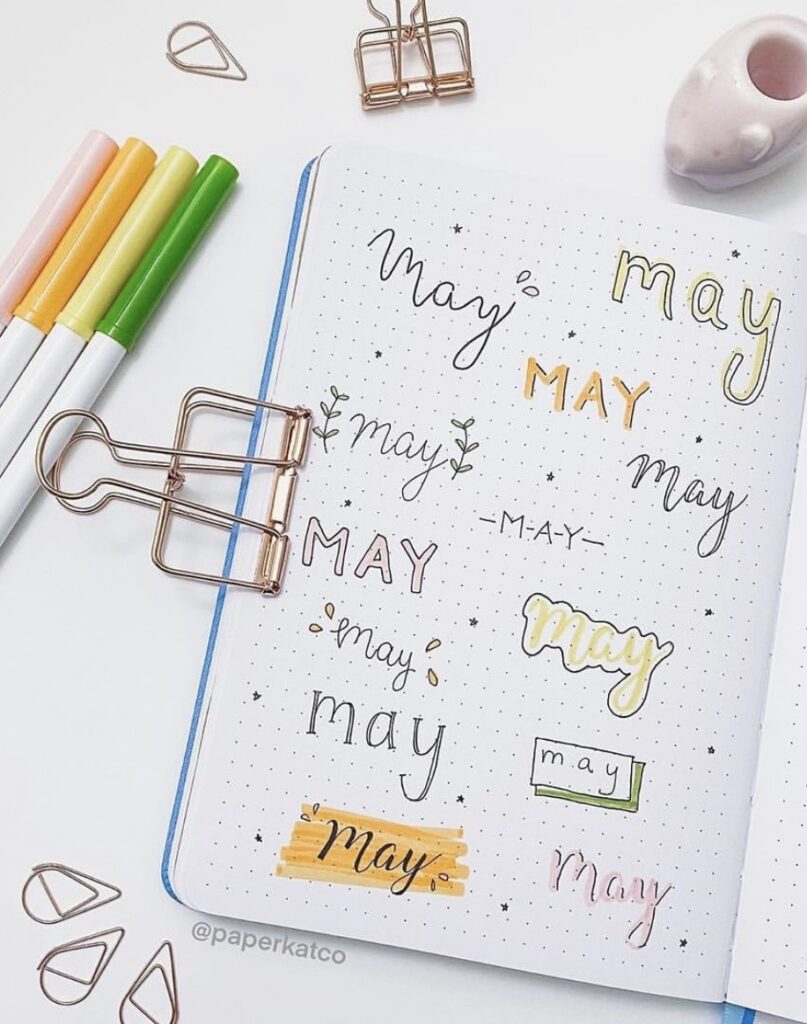 may
may
MAY
may
may
-M-A-Y-
MAY
may
may
may
may
may
may
@paperkatco